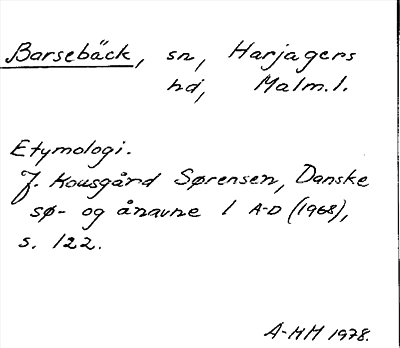 Barsebäck, sn, Harjagers
hd, Malm.l.
Etymologi.
J. Kousgård Sørensen, Danske
sø- og ånavne 1 A-D (1968),
s. 122.
A-HM 1978.